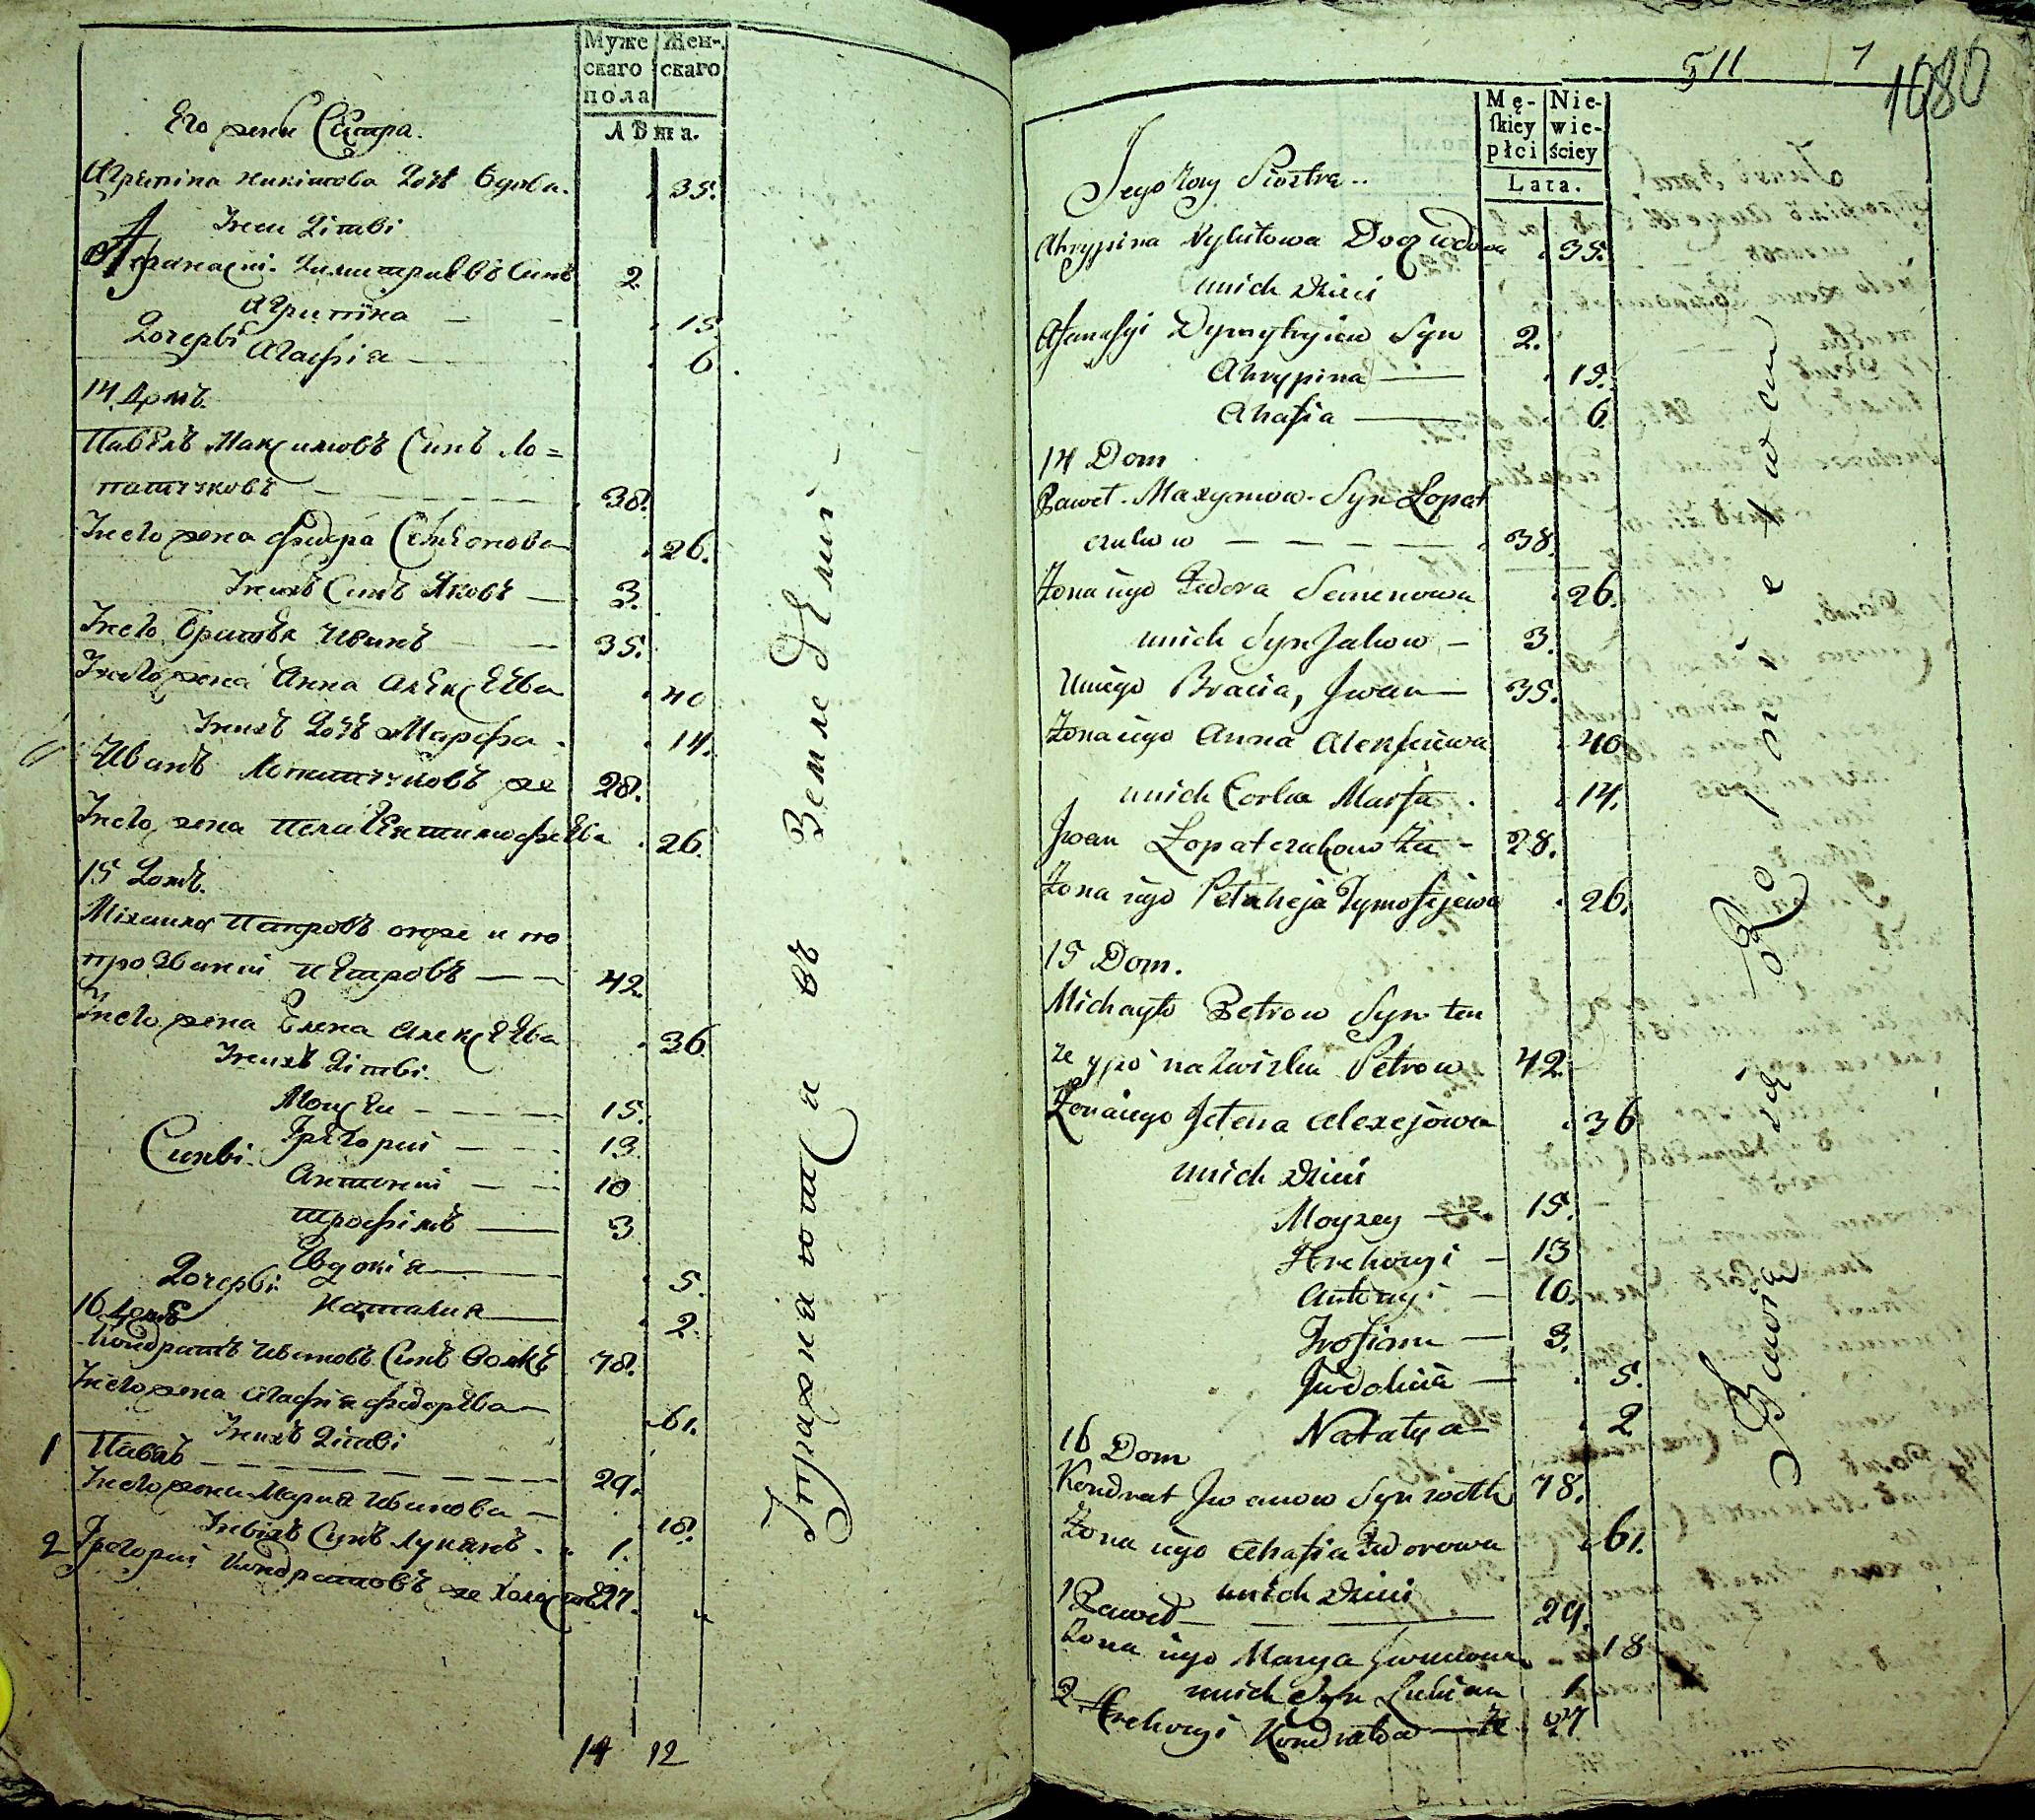 Муже Жен-
скаго скаго
пола
Лѣта.
Его жени Систра.
Агрипина никитова Дочь вдова. 35.
У нeи Дѣти
Афанасий Димитриевъ Синъ 2
Агрипина — 15.
Дочери
Агафиа — 6.
14 Домъ.
Павелъ Максимовъ Синъ Ло=
патчковъ — 38.
У него жена федора Семенова 26.
У нихъ Синъ Яковъ — 3.
У него Братья Иванъ — 35.
У него жена Анна алексеева 40
У нихъ Дочь Марфа 14.
Иванъ Лопатчковъ же 28.
У него жена Пелагея тимофеева 26.
15 Домъ.
Михаила Петровъ онже и по
прозванию петровъ — 42.
У него жена Елена алексеева 36
У нихъ Дѣти.
Моисеи — 15.
Сини. Григории — 13
Антонии — 10
трофимъ — 3
Евдокиа — 5.
Дочери.
Наталия — 2.
16 Домъ
Кондратъ ивановъ Синъ волкъ 78.
У него жена агафиа федорова 61.
У нихъ Дѣти
1 Павелъ — 29.
У него жена Мариа иванова — 18.
У нихъ Синъ лукиянъ 1.
2 Григории Кондратовъ же холостъ 27.
14 12
Упражняются въ Земледелии
511 7
1080
Mę- Nie-
ſkiey wie-
płci ściey
Lata.
Jego żony Siostra..
Ahrypina Nykitowa Docz wdowa 35.
u nich dzieci
Afanasyi Dymytryiew Syn 2.
Ahrypina — 15.
Ahafia — 6.
14 Dom
Paweł Maxymow Syn Łopat
czukow — 38.
Żona iego Fedora Semenowa 26.
u nich Syn Jakow — 3.
U niego Bracia, Jwan — 35.
Żona iego Anna Alexsiiewa 40.
u nich Corka Marfa 14.
Jwan Łopatczukow że 28.
Żona iego Pelaheja Tymofiejewa 26.
15 Dom.
Michayło Petrow Syn ten
że y po nazwisku Petrow 42.
Żona iego Jelena Alexejowa 36
u nich dzieci
Moyzey — 15.
Hrehoryi — 13
Antonyi — 10.
Trofim — 3.
Jwdokiia — 5.
Natalya 2
16 Dom
Kondrat Jwanow Syn wołk 78.
Żona iego Ahafia Fedorowa 61.
u nich dzieci
1 Paweł — 29.
Żona iego Marya Jwanowa 18
u nich Syn Lukian 1.
2 Hrehoryi Kondratow — że 27
Bawią się Rolnictwem